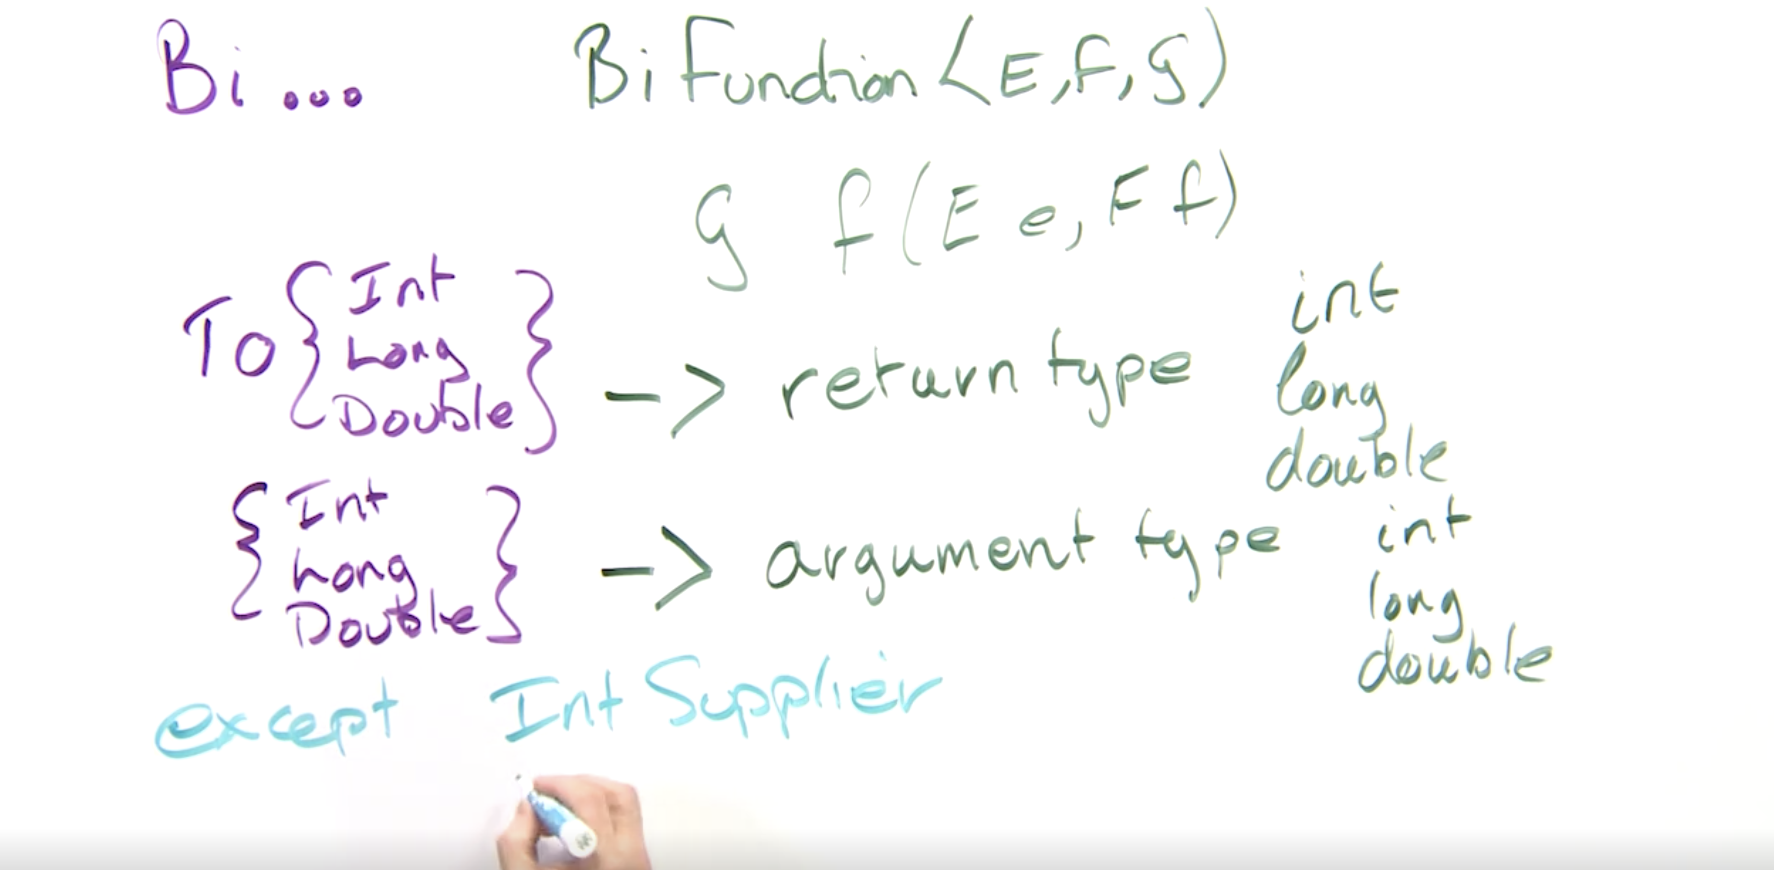 Bi ... BiFunction<E,F,G)
G f(E e, F f)
To { Int
Long
Double } -> return type int
long
double
{ Int
Long
Double } -> argument type int
long
double
except IntSupplier